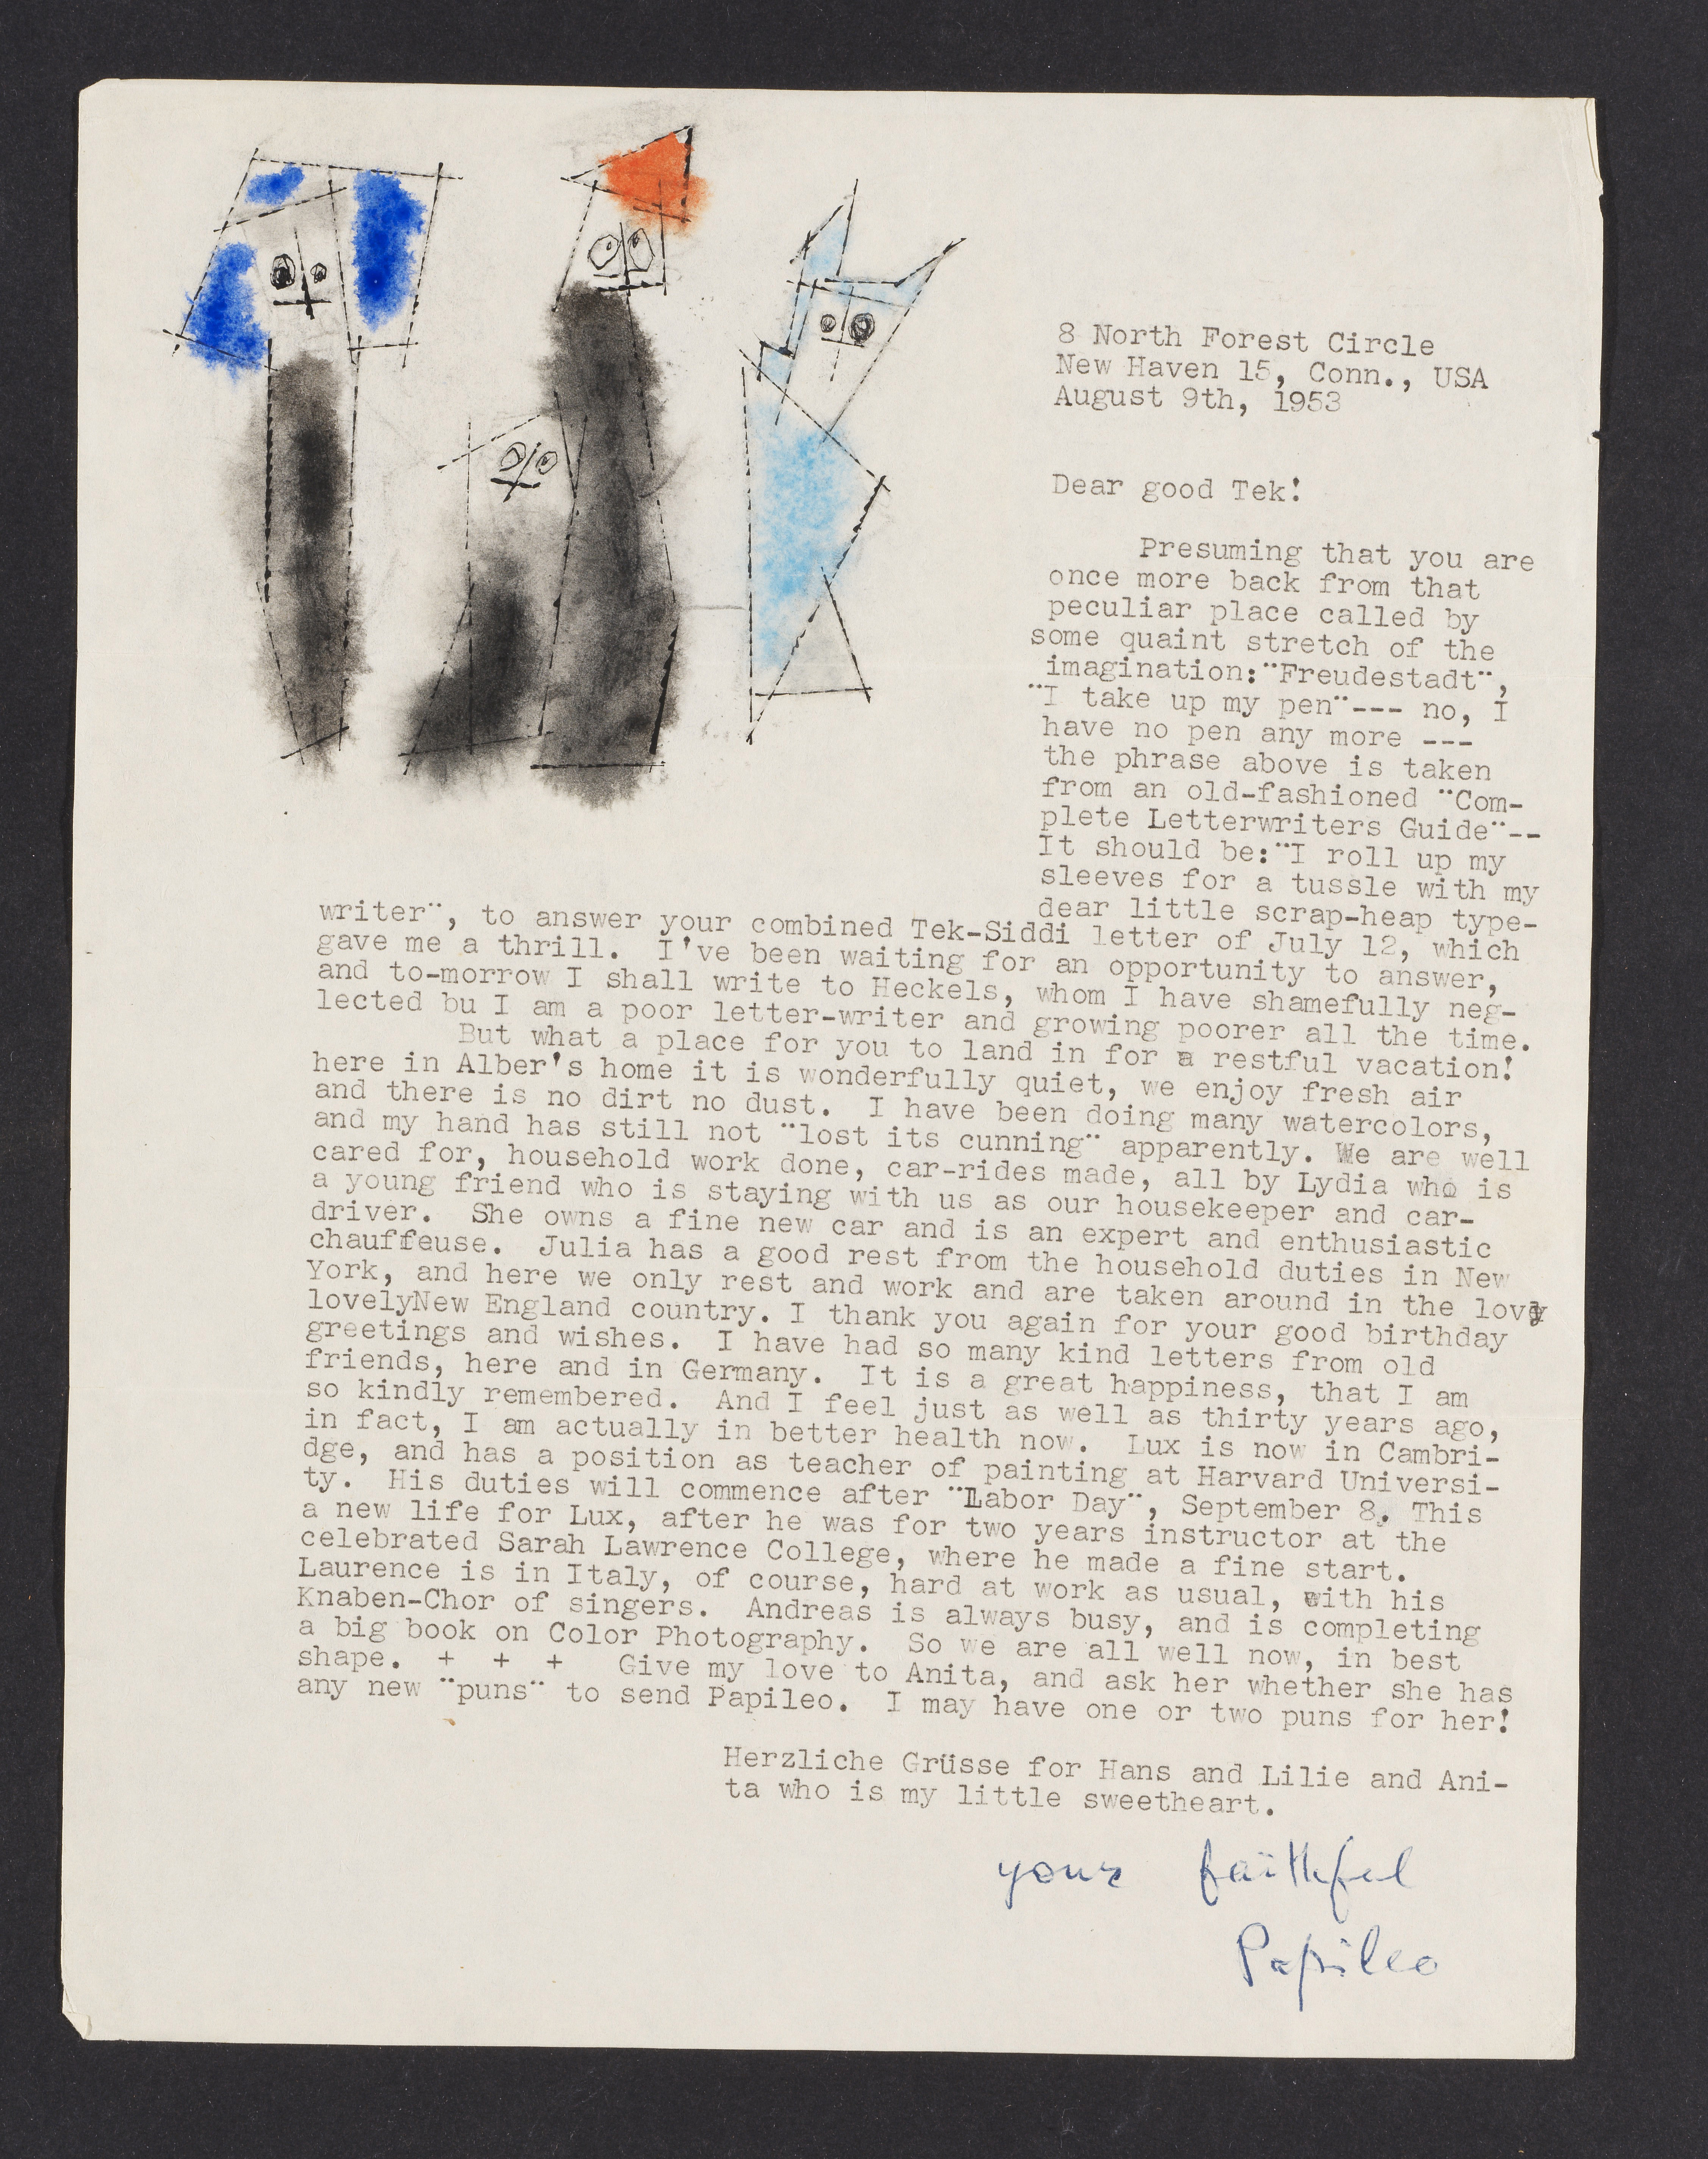 8 North Forest Circle
New Haven 15, Conn., USA
August 9th, 1953
Dear good Tek!
Presuming that you are
once more back from that
peculiar place called by
some quaint stretch of the
imagination:¨Freudestadt¨,
¨I take up my pen¨--- no, I
have no pen any more ---
the phrase above is taken
from an old-fashioned ¨Com-
plete Letterwriters Guide¨--
It should be:¨I roll up my
sleeves for a tussle with my
dear little scrap-heap type-
writer¨, to answer your combined Tek-Siddi letter of July 12, which
gave me a thrill. I've been waiting for an opportunity to answer,
and to-morrow I shall write to Heckels, whom I have shamefully neg-
lected bu I am a poor letter-writer and growing poorer all the time.
But what a place for you to land in for a restful vacation!
here in Alber's home it is wonderfully quiet, we enjoy fresh air
and there is no dirt no dust. I have been doing many watercolors,
and my hand has still not ¨lost its cunning¨ apparently. We are well
cared for, household work done, car-rides made, all by Lydia who is
a young friend who is staying with us as our housekeeper and car-
driver. She owns a fine new car and is an expert and enthusiastic
chauffeuse. Julia has a good rest from the household duties in New
York, and here we only rest and work and are taken around in the lovly
lovelyNew England country. I thank you again for your good birthday
greetings and wishes. I have had so many kind letters from old
friends, here and in Germany. It is a great happiness, that I am
so kindly remembered. And I feel just as well as thirty years ago,
in fact, I am actually in better health now. Lux is now in Cambri-
dge, and has a position as teacher of painting at Harvard Universi-
ty. His duties will commence after ¨Labor Day¨, September 8. This
a new life for Lux, after he was for two years instructor at the
celebrated Sarah Lawrence College, where he made a fine start.
Laurence is in Italy, of course, hard at work as usual, with his
Knaben-Chor of singers. Andreas is always busy, and is completing
a big book on Color Photography. So we are all well now, in best
shape. + + + Give my love to Anita, and ask her whether she has
any new ¨puns¨ to send Papileo. I may have one or two puns for her!
Herzliche Grüsse for Hans and Lilie and Ani-
ta who is my little sweetheart.
your faithful
Papileo